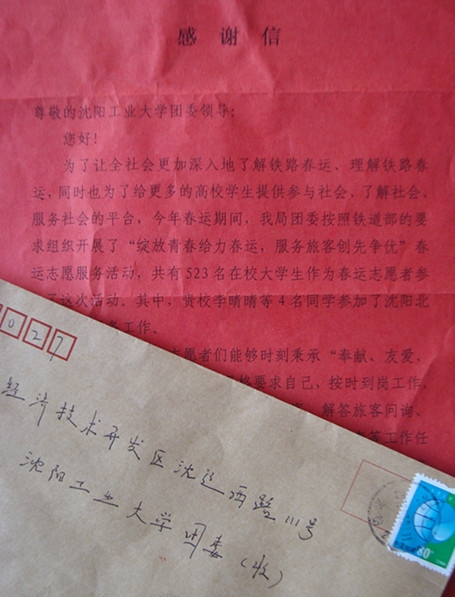 感谢信
尊敬的沈阳工业大学团委领导:
您好!
为了让全社会更加深入地了解铁路春运、理解铁路春
运,同时也为了给更多的高校学生提供参与社会、了解社会、
服务社会的平台,今年春运期间,我局团委按照铁道部的要
求组织开展了“绽放青春给力春运,服务旅客创先争优”春
运志愿服务活动,共有523名在校大学生作为春运志愿者参
了这次活动。其中,贵校李晴晴等4名同学参加了沈阳北
工作。
愿者们能够时刻秉承“奉献、友爱、
格要求自己,按时到岗工作,
解答旅客问询、
等工作任
027
经济技术开发区沈辽西路111号
沈阳工业大学团委(收)
80